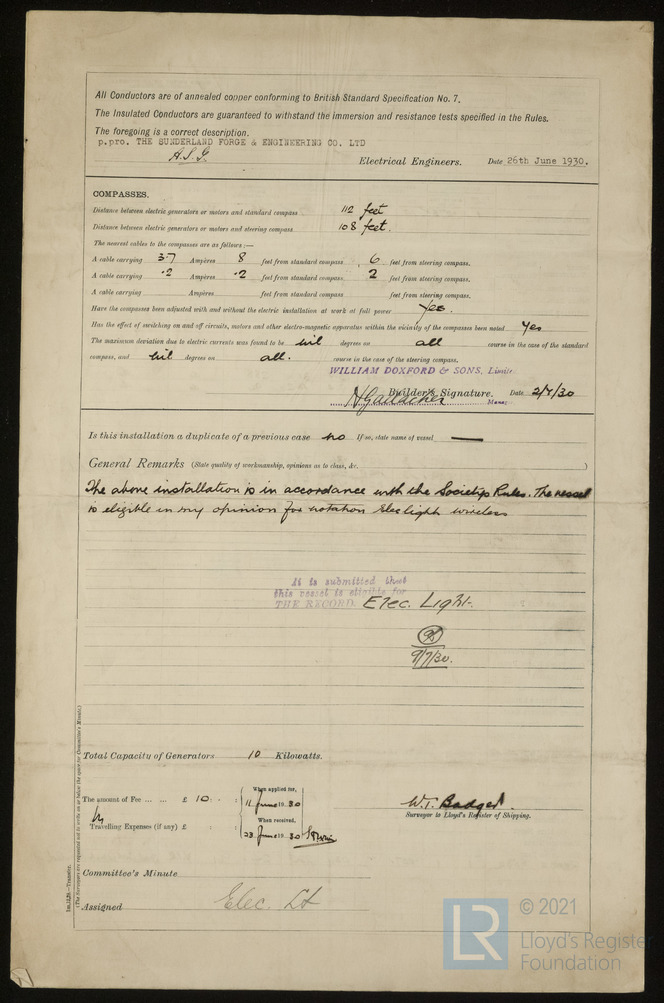 All Conductors are of annealed copper conforming to British Standard Specification No. 7.
The Insulated Conductors are guaranteed to withstand the immersion and resistance tests specified in the Rules.
The foregoing is a correct description.
p.pro. THE SUNDERLAND FORGE & ENGINEERING CO. LTD
A.S.G. Electrical Engineers. Date 26th June 1930.
COMPASSES.
Distance between electric generators or motors and standard compass 112 feet
Distance between electric generators or motors and steering compass 108 feet.
The nearest cables to the compasses are as follows:—
A cable carrying 3.7 Ampères 8 feet from standard compass 6 feet from steering compass.
A cable carrying .2 Ampères .2 feet from standard compass 2 feet from steering compass.
A cable carrying Ampères feet from standard compass feet from steering compass.
Have the compasses been adjusted with and without the electric installation at work at full power Yes.
Has the effect of switching on and off circuits, motors and other electro-magnetic apparatus within the vicinity of the compasses been noted Yes
The maximum deviation due to electric currents was found to be nil degrees on all course in the case of the standard
compass, and nil degrees on all. course in the case of the steering compass.
WILLIAM DOXFORD & SONS, Limited
Builder's Signature. Date 2/7/30
Is this installation a duplicate of a previous case no If so, state name of vessel —
General Remarks (State quality of workmanship, opinions as to class, &c. )
The above installation is in accordance with the Societys Rules. The vessel
is eligible in my opinion for notation Elec light wireless
It is submitted that
this vessel is eligible for
THE RECORD. Elec. Light.
9/7/30.
Total Capacity of Generators 10 Kilowatts.
The amount of Fee ... ... £ 10 : :
When applied for,
11 June 19 30
Travelling Expenses (if any) £ : :
When received,
23 June 19 30
W.T. Badger.
Surveyor to Lloyd's Register of Shipping.
Committee's Minute
Assigned Elec. Lt
(The Surveyors are requested not to write on or below the space for Committee's Minute.)
LR
© 2021
Lloyd's Register
Foundation